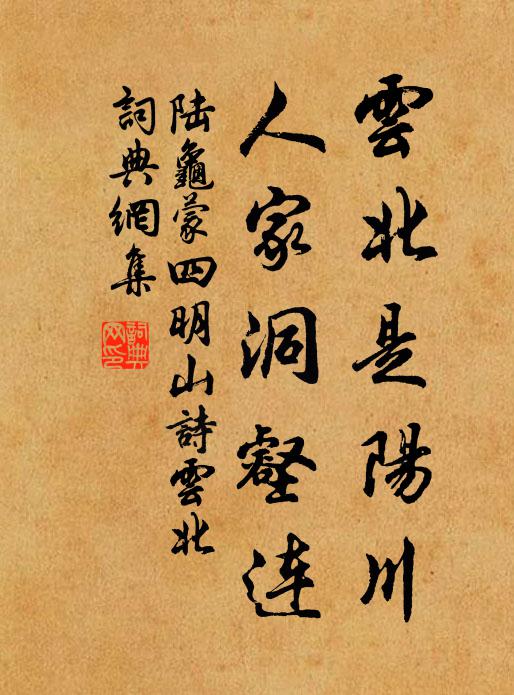 雲北是陽川
人家洞壑連
陆龜蒙四明山詩雲北
詞典網集
詞典网印